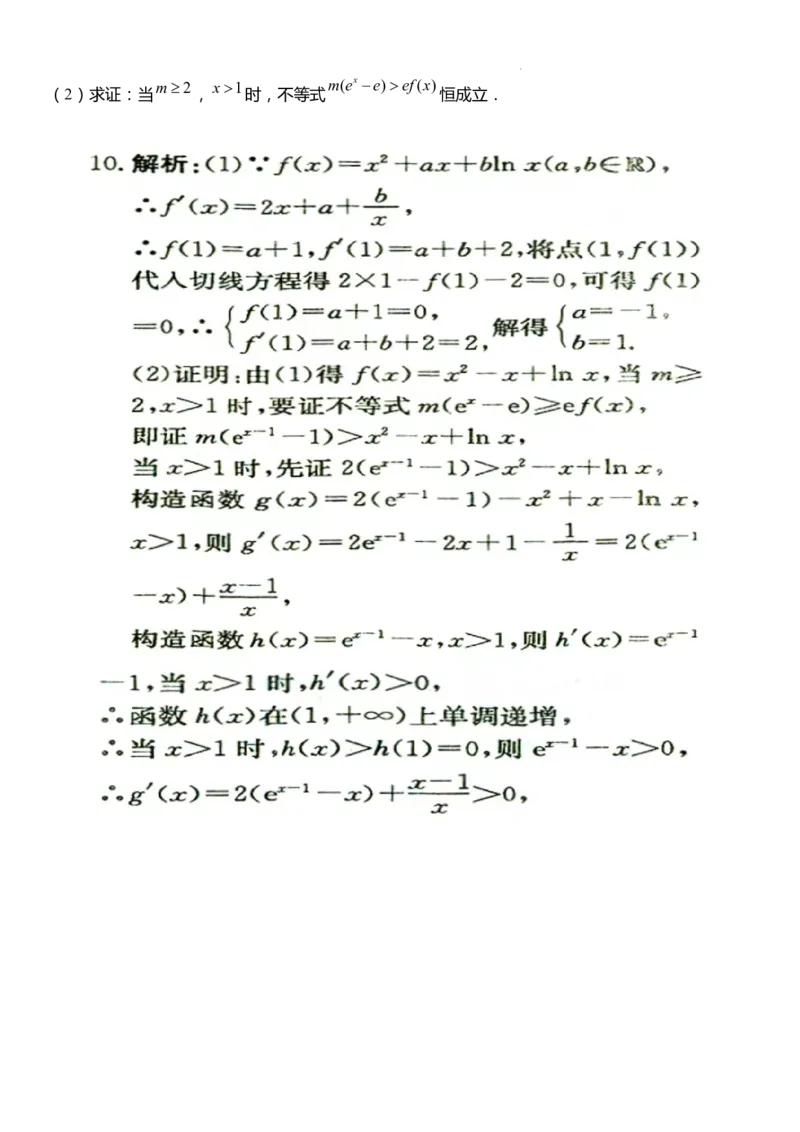 （2）求证：当m≥2，x>1时，不等式m(eˣ−e)>ef(x)恒成立．
10. 解析:(1)∵f(x)=x²+ax+bln x(a,b∈R),
∴f′(x)=2x+a+b/x,
∴f(1)=a+1,f′(1)=a+b+2,将点(1,f(1))
代入切线方程得 2×1-f(1)-2=0,可得 f(1)
=0,∴{f(1)=a+1=0, f′(1)=a+b+2=2, 解得{a=-1, b=1.
(2)证明:由(1)得 f(x)=x²-x+ln x,当 m≥
2,x>1 时,要证不等式 m(eˣ-e)≥ef(x),
即证 m(eˣ⁻¹-1)>x²-x+ln x,
当 x>1 时,先证 2(eˣ⁻¹-1)>x²-x+ln x,
构造函数 g(x)=2(eˣ⁻¹-1)-x²+x-ln x,
x>1,则 g′(x)=2eˣ⁻¹-2x+1-1/x=2(eˣ⁻¹
-x)+(x-1)/x,
构造函数 h(x)=eˣ⁻¹-x,x>1,则 h′(x)=eˣ⁻¹
-1,当 x>1 时,h′(x)>0,
∴函数 h(x)在(1,+∞)上单调递增,
∴当 x>1 时,h(x)>h(1)=0,则 eˣ⁻¹-x>0,
∴g′(x)=2(eˣ⁻¹-x)+(x-1)/x>0,